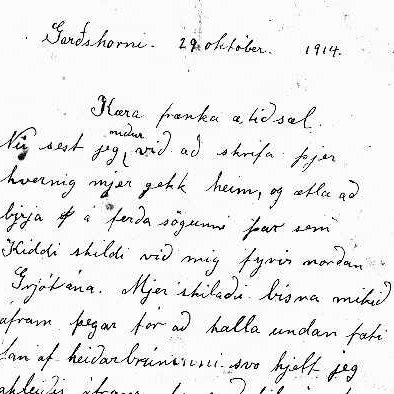 Garðshorni. 29 október. 1914.
Kæra frænka æ, tíð sæl.
niður
Nú sest jeg við að skrifa þjer
hvernig mjer gekk heim, og ætla að
byrja á ferða sögunni þar sem
Kiddi skildi við mig fyrir norðan
Grjótána. Mjer skilaði bísna mikið
áfram þegar fór að halla undan fæti
fan af heiðarbrúninni svo hjelt jeg
áfram